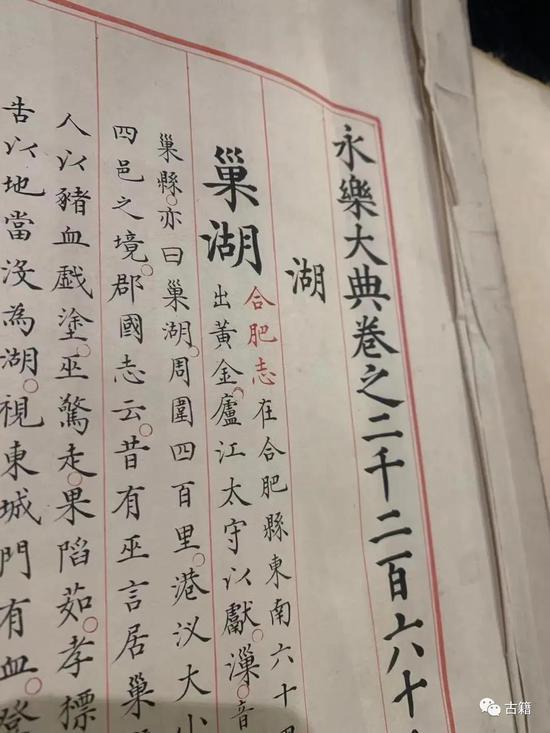 永樂大典卷之二千二百六十
湖
巢湖
合肥志在合肥縣東南六十
出黃金。廬江太守以獻。漅。音
巢縣。亦曰巢湖。周圍四百里。港汊大小
四邑之境。郡國志云。昔有巫言居巢
人以豬血戲塗。巫驚走。果陷。茹孝標
告以地當没為湖。視東城門有血。登
古籍